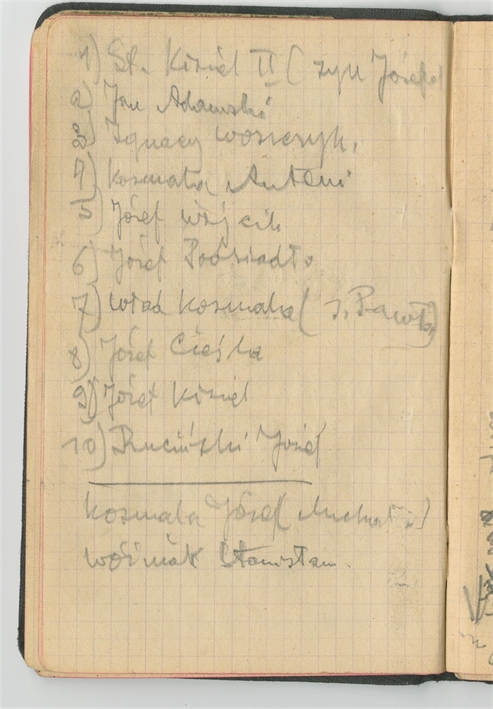 1) St. Kozieł II ( syn Józefa)
2) Jan Adamski
3) Ignacy Wawrzyk.
4) Kosmala Antoni
5) Józef Wójcik
6) Józef Podsiadło
7) Wład Kosmala ( s. Pawła)
8) Józef Cieśla
9) Józef Kozieł
10) Ruciński Józef
Kosmala Józef (
Woźniak Stanisław.